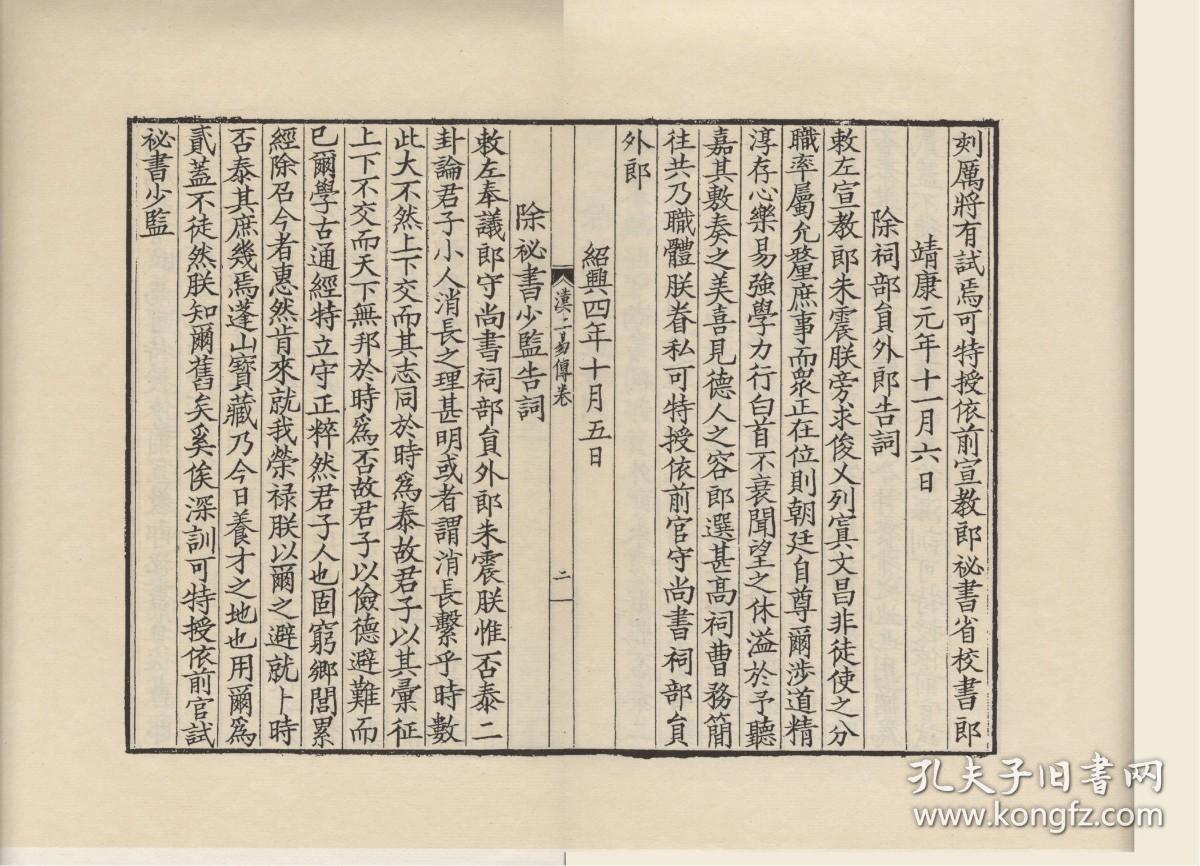 刻厲將有試焉可特授依前宣教郎祕書省校書郎
靖康元年十一月六日
除祠部員外郎告詞
敕左宣教郎朱震朕旁求俊乂列寘文昌非徒使之分
職率屬允釐庶事而衆正在位則朝廷自尊爾涉道精
淳存心樂易強學力行白首不衰聞望之休溢於予聽
嘉其敷奏之美喜見德人之容郎選甚高祠曹務簡
往共乃職體朕眷私可特授依前官守尚書祠部員
外郎
紹興四年十月五日
漢上易傳卷
二
除祕書少監告詞
敕左奉議郎守尚書祠部員外郎朱震朕惟否泰二
卦論君子小人消長之理甚明或者謂消長繫乎時數
此大不然上下交而其志同於時爲泰故君子以其彙征
上下不交而天下無邦於時爲否故君子以儉德避難而
已爾學古通經特立守正粹然君子人也固窮鄉閭累
經除召今者惠然肯來就我榮祿朕以爾之避就卜時
否泰其庶幾焉蓬山寶藏乃今日養才之地也用爾爲
貳蓋不徒然朕知爾舊矣奚俟深訓可特授依前官試
祕書少監
孔夫子旧书网
www.kongfz.com